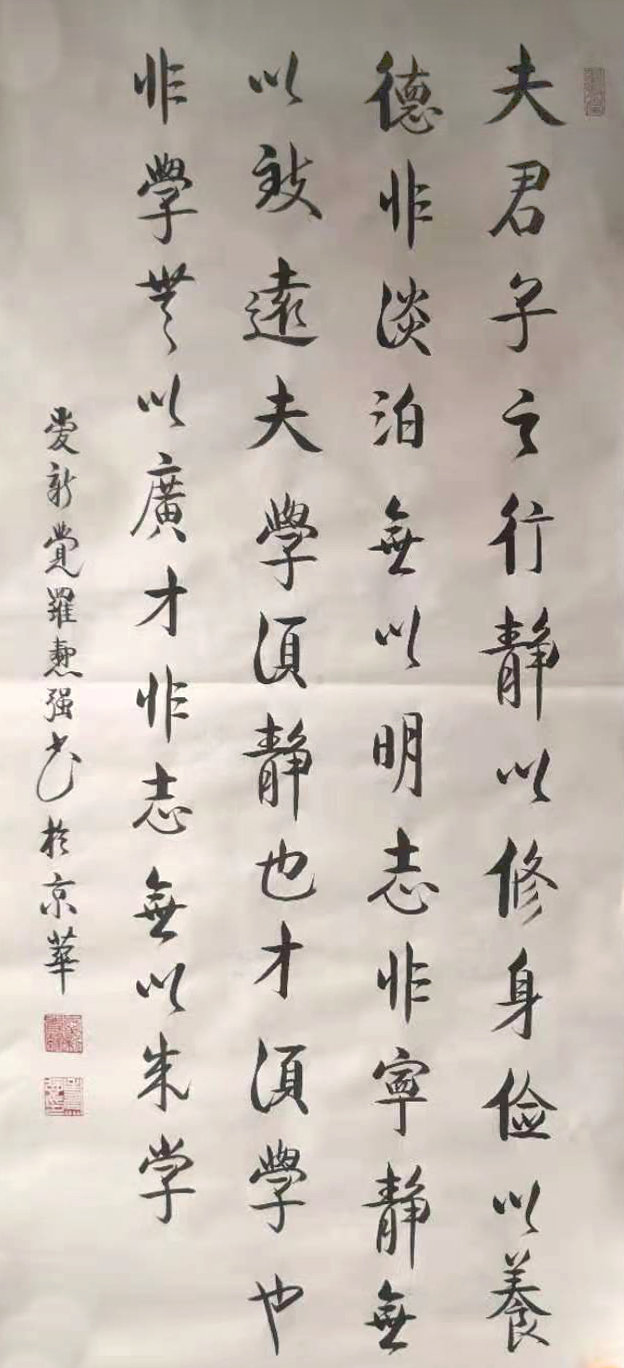 夫君子之行靜以修身儉以養
德非淡泊無以明志非寧靜無
以致遠夫學須靜也才須學也
非學無以廣才非志無以成学
愛新覺羅懃强书於京華